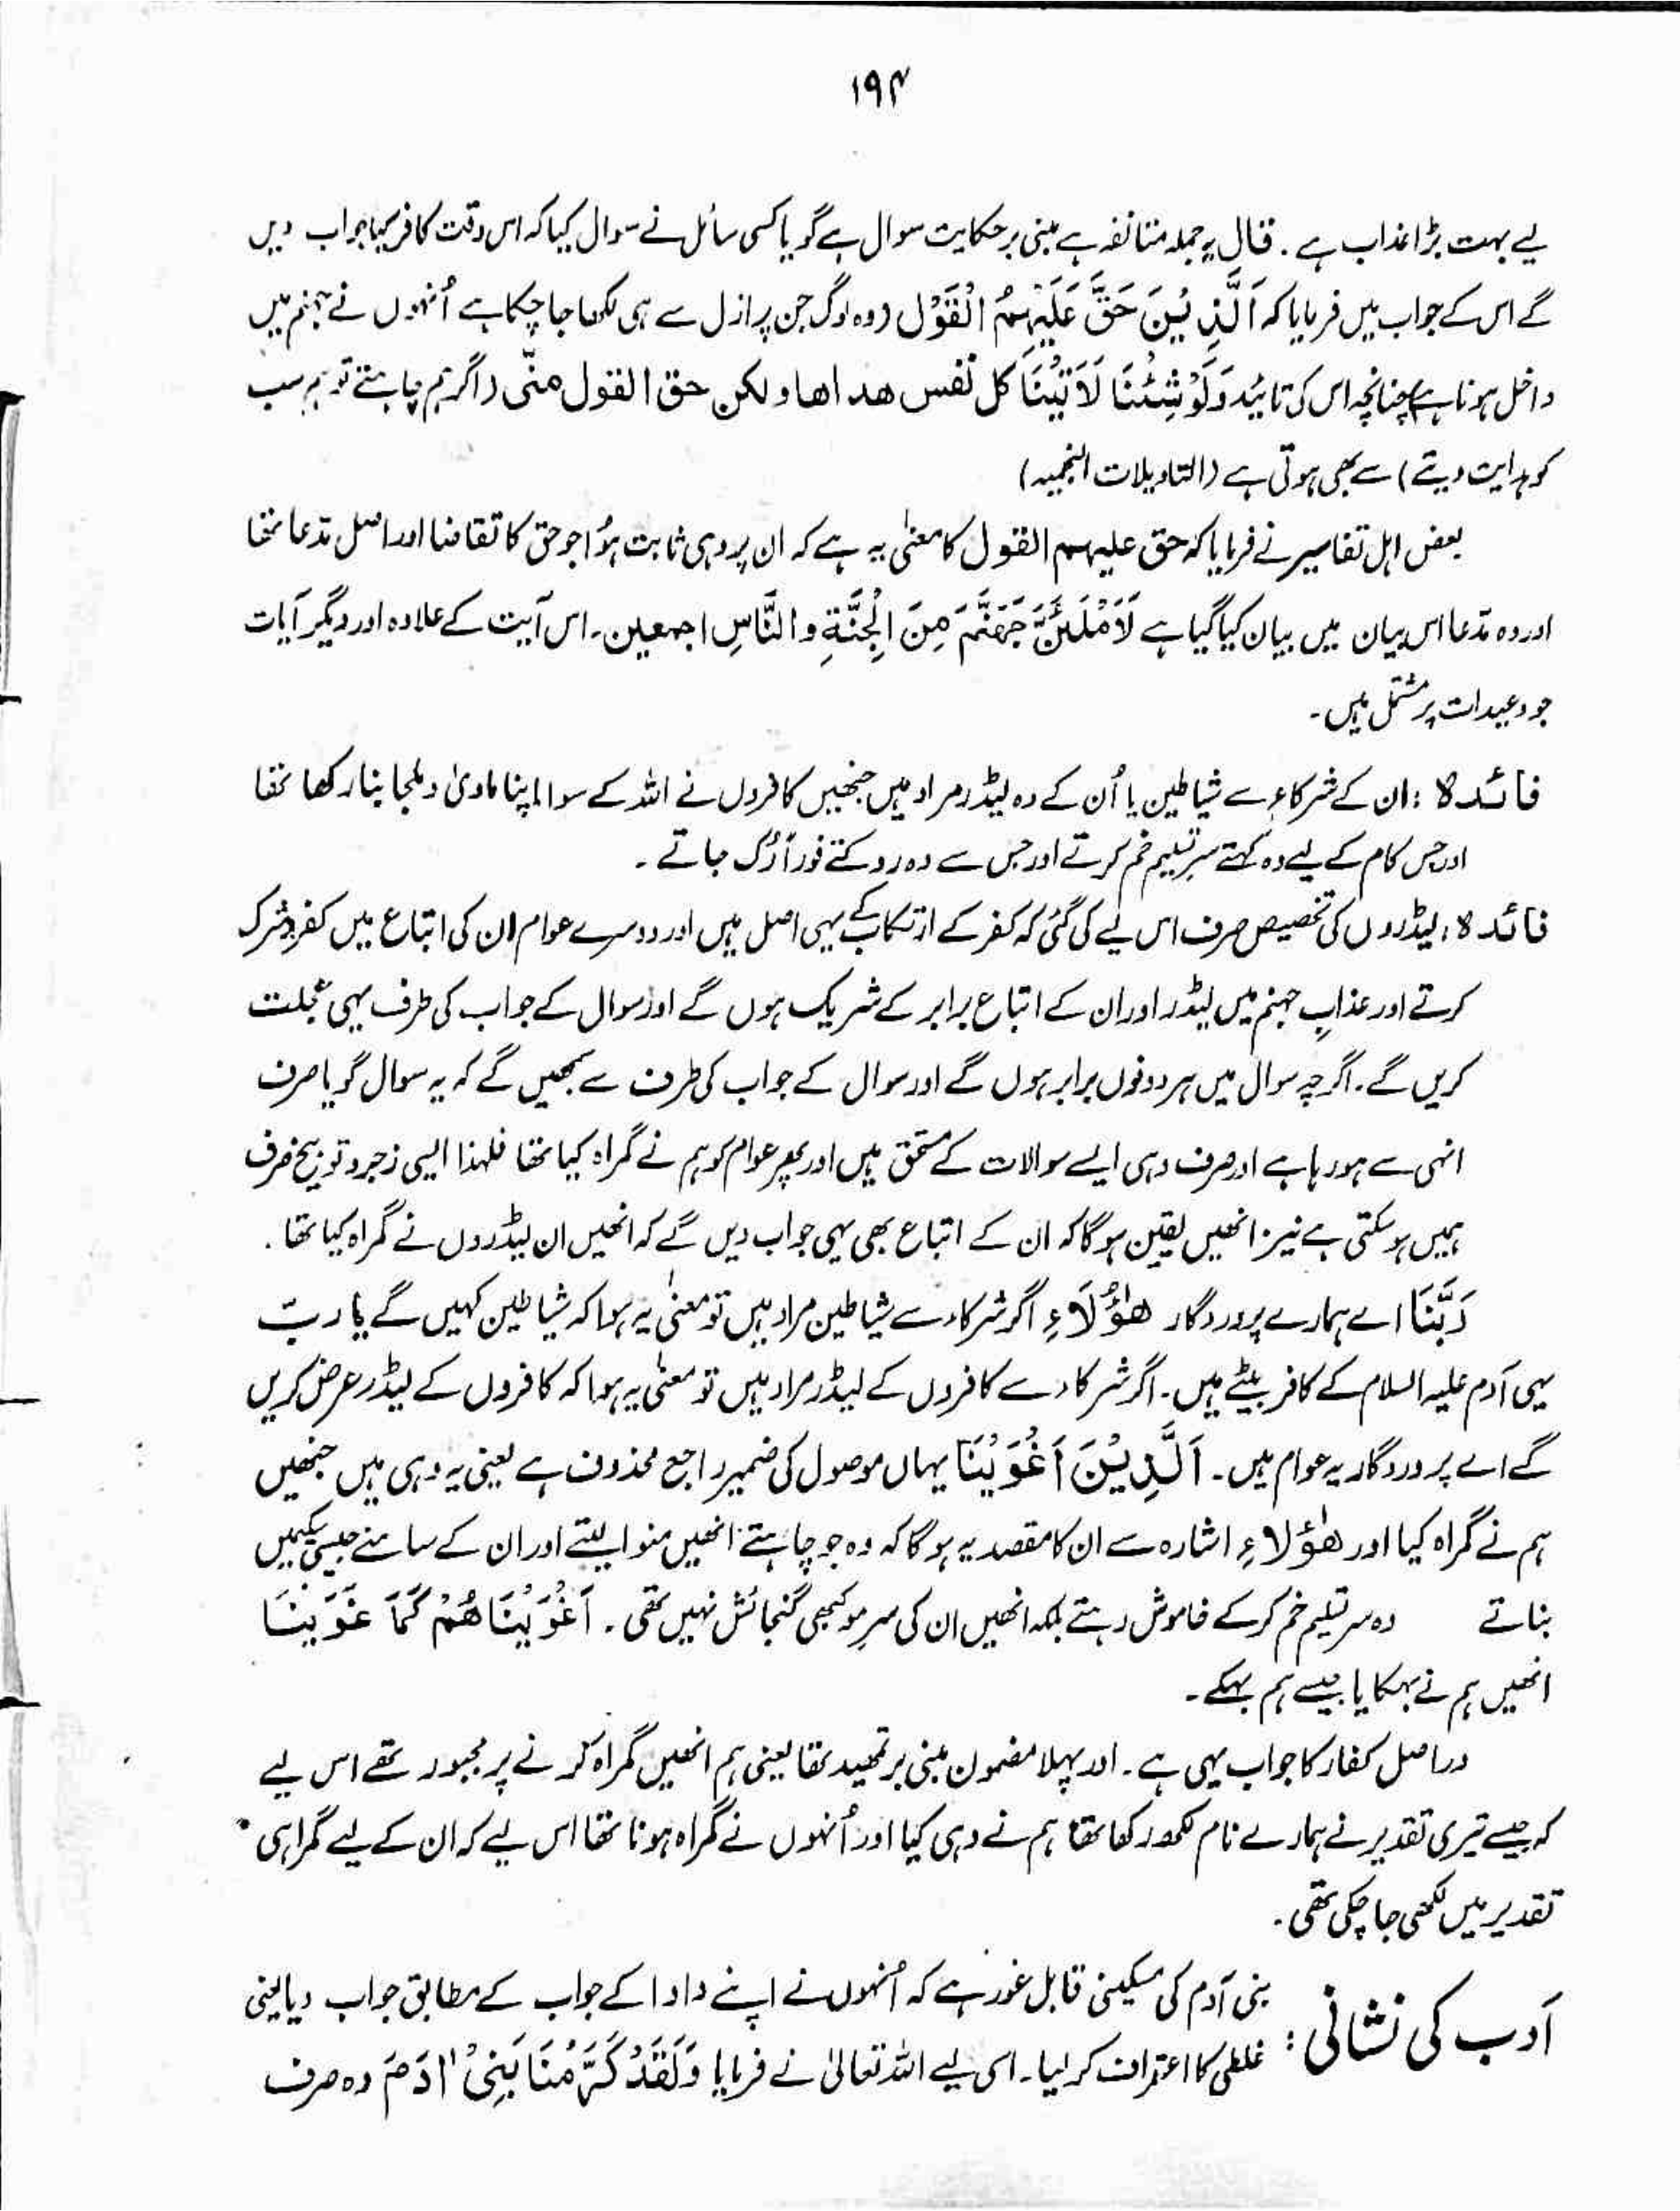 ۱۹۴
لیے بہت بڑا عذاب ہے ۔ قال یہ جملہ متانفہ ہے مبنی بر حکایت سوال ہے گویا کسی سائل نے سوال کیا کہ اس وقت کافر کیا جواب دیں
گے اس کے جواب میں فرمایا کہ اَلَّذِیْنَ حَقَّ عَلَیْہِمُ الْقَوْل (وہ لوگ جن پر ازل سے ہی لکھا جا چکا ہے اُنہوں نے جہنم میں
داخل ہونا ہے) چنانچہ اس کی تائید وَلَوْ شِئْنَا لَاَتَیْنَا کل نفس ھداھا و لکن حق القول منّی (اگر ہم چاہتے تو ہم سب
کو ہدایت دیتے) سے بھی ہوتی ہے (التاویلات النجمیہ)
بعض اہل تفاسیر نے فرمایا کہ حق علیہم القول کا معنیٰ یہ ہے کہ ان پر وہی ثابت ہُوا جو حق کا تقاضا اور اصل مدعا تھا
اور وہ مدعا اس بیان میں بیان کیا گیا ہے لَاَمْلَئَنَّ جَھَنَّمَ مِنَ الْجِنَّۃِ و النَّاسِ اجمعین۔ اس آیت کے علاوہ اور دیگر آیات
جو وعیدات پر مشتمل ہیں۔
فائدہ : ان کے شرکاء سے شیاطین یا اُن کے وہ لیڈر مراد ہیں جنھیں کافروں نے اللہ کے سوا اپنا ماویٰ و ملجا بنا رکھا تھا
اور جس کام کے لیے وہ کہتے سر تسلیم خم کرتے اور جس سے وہ روکتے فوراً رُک جاتے ۔
فائدہ : لیڈروں کی تخصیص صرف اس لیے کی گئی کہ کفر کے ارتکاب کے یہی اصل ہیں اور دوسرے عوام ان کی اتباع میں کفر و شرک
کرتے اور عذابِ جہنم میں لیڈر اور ان کے اتباع برابر کے شریک ہوں گے اور سوال کے جواب کی طرف یہی عجلت
کریں گے۔ اگرچہ سوال میں ہر دونوں برابر ہوں گے اور سوال کے جواب کی طرف سے سمجھیں گے کہ یہ سوال گویا صرف
انہی سے ہو رہا ہے اور صرف وہی ایسے سوالات کے مستحق ہیں اور پھر عوام کو ہم نے گمراہ کیا تھا فلہٰذا ایسی زجر و توبیخ صرف
ہمیں ہو سکتی ہے نیز انھیں یقین ہوگا کہ ان کے اتباع بھی یہی جواب دیں گے کہ انھیں ان لیڈروں نے گمراہ کیا تھا ۔
رَبَّنَا اے ہمارے پروردگار ھٰؤُلَاءِ اگر شرکاء سے شیاطین مراد ہیں تو معنیٰ یہ ہوا کہ شیاطین کہیں گے یا ربّ
یہی آدم علیہ السلام کے کافر بیٹے ہیں۔ اگر شرکاء سے کافروں کے لیڈر مراد ہیں تو معنیٰ یہ ہوا کہ کافروں کے لیڈر عرض کریں
گے اے پروردگار یہ عوام ہیں۔ اَلَّذِیْنَ اَغْوَیْنَا یہاں موصول کی ضمیر راجع محذوف ہے یعنی یہ وہی ہیں جنھیں
ہم نے گمراہ کیا اور ھٰؤلاءِ اشارہ سے ان کا مقصد یہ ہوگا کہ وہ جو چاہتے انھیں منوا لیتے اور ان کے سامنے جیسی سکیمیں
بناتے وہ سر تسلیم خم کر کے خاموش رہتے بلکہ انھیں ان کی سرمو کبھی گنجائش نہیں تھی ۔ اَغْوَیْنَاھُمْ کَمَا غَوَیْنَا
انھیں ہم نے بہکایا جیسے ہم بہکے۔
دراصل کفار کا جواب یہی ہے ۔ اور پہلا مضمون مبنی بر تمہید تھا یعنی ہم انھیں گمراہ کرنے پر مجبور تھے اس لیے
کہ جیسے تیری تقدیر نے ہمارے نام لکھ رکھا تھا ہم نے وہی کیا اور اُنہوں نے گمراہ ہونا تھا اس لیے کہ ان کے لیے گمراہی
تقدیر میں لکھی جا چکی تھی ۔
اَدب کی نشانی : بنی آدم کی مسکینی قابل غور ہے کہ اُنہوں نے اپنے دادا کے جواب کے مطابق جواب دیا یعنی
غلطی کا اعتراف کر لیا۔ اسی لیے اللہ تعالیٰ نے فرمایا وَلَقَدْ کَرَّمْنَا بَنِیْ اٰدَمَ وہ صرف